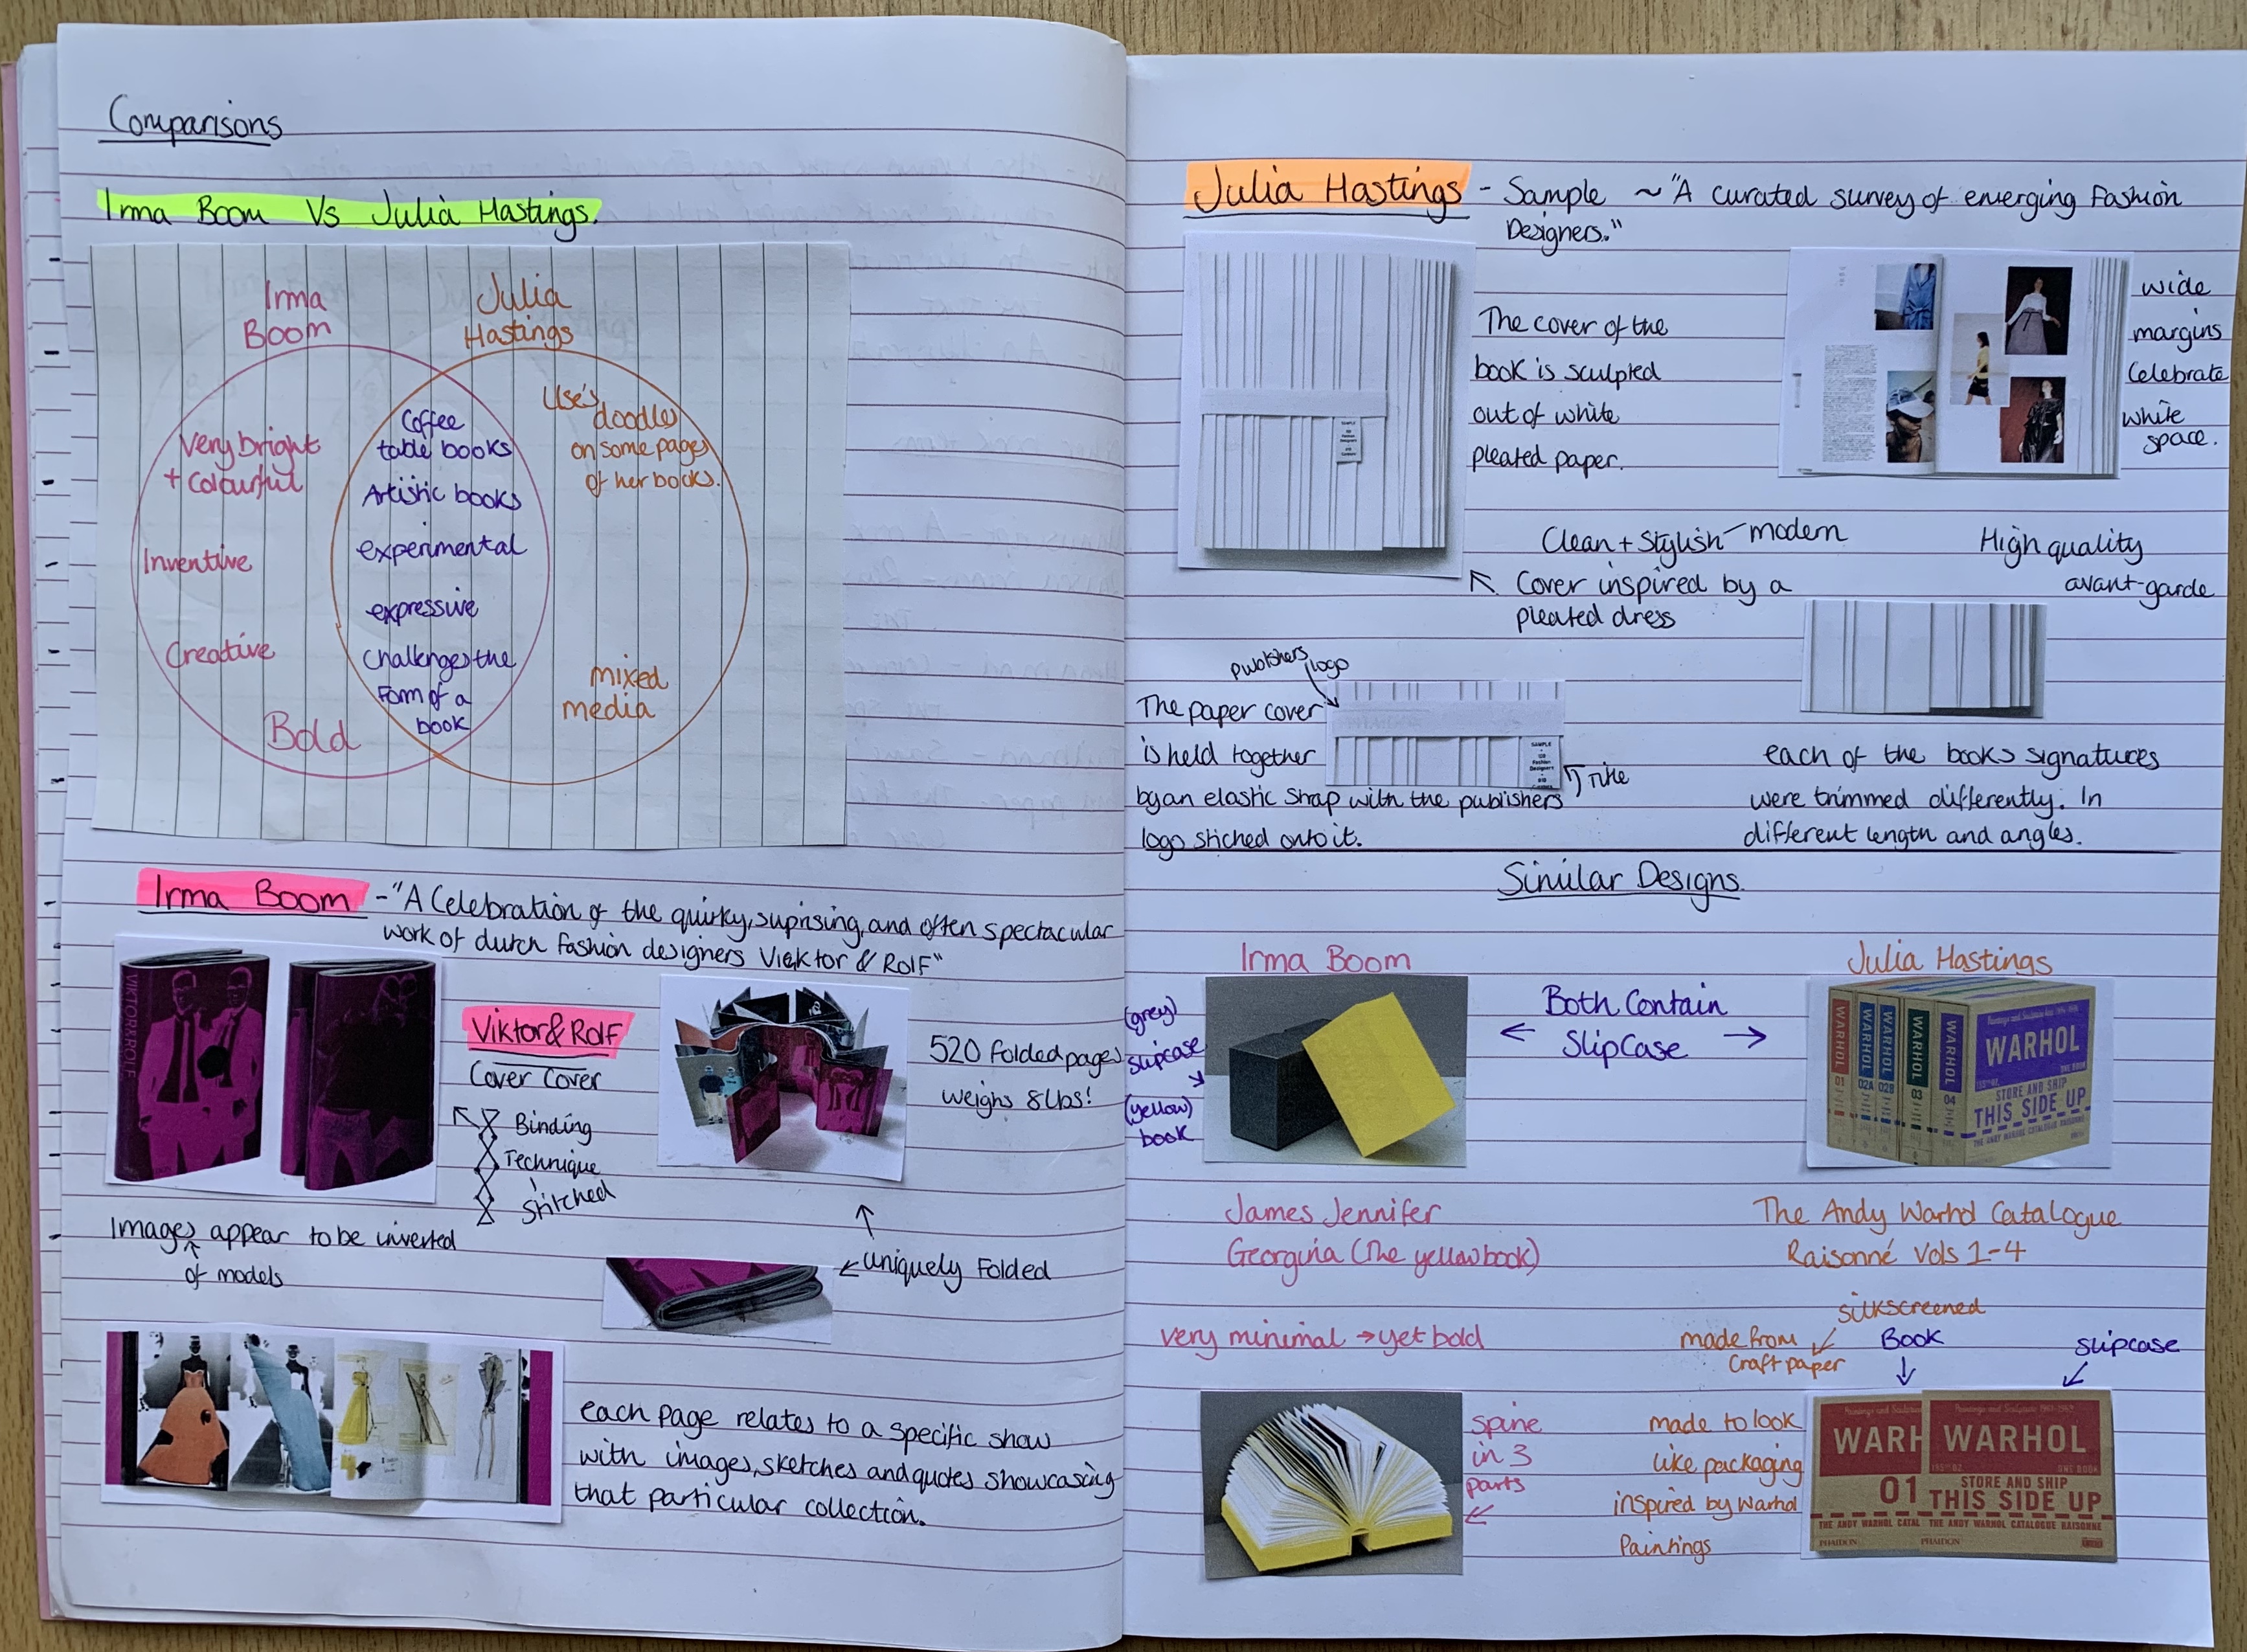 Comparisons
Irma Boom Vs Julia Hastings.
Irma
Boom
Julia
Hastings
Very bright
+ Colourful
Inventive
Creative
Bold
Coffee
table books
Artistic books
experimental
expressive
Challenges the
Form of a
book
Use's doodles
on some pages
of her books.
mixed
media
Irma Boom - "A Celebration of the quirky, suprising, and often spectacular
work of dutch fashion designers Viektor & Rolf"
VIKTOR&ROLF
Viktor & Rolf
Cover Cover
Binding
Technique
Stitched
520 folded pages
weighs 8lbs!
Images appear to be inverted
of models
uniquely Folded
each page relates to a specific show
with images, sketches and quotes showcasing
that particular collection.
Julia Hastings - Sample ~ "A curated survey of emerging Fashion
Designers."
The cover of the
book is sculpted
out of white
pleated paper.
wide
margins
Celebrate
white
space.
Clean + Stylish - modern
High quality
avant-garde
Cover inspired by a
pleated dress
publishers logo
The paper cover
is held together
by an elastic strap with the publishers
logo stiched onto it.
SAMPLE
Fashion
Designers
Title
each of the books signatures
were trimmed differently. In
different length and angles.
Similar Designs
Irma Boom
Julia Hastings
(grey)
slipcase
(yellow)
book
Both Contain
SlipCase
WARHOL 01
WARHOL 02A
WARHOL 02B
WARHOL 03
WARHOL 04
WARHOL
STORE AND SHIP
THIS SIDE UP
THE ANDY WARHOL CATALOGUE RAISONNE
James Jennifer
Georgina (The yellow book)
The Andy Warhol Catalogue
Raisonné Vols 1-4
very minimal → yet bold
silkscreened
made from
Craft paper
Book
slipcase
spine
in 3
parts
made to look
like packaging
inspired by Warhol
Paintings
WARH
01
THE ANDY WARHOL CATAL
PHAIDON
WARHOL
STORE AND SHIP
THIS SIDE UP
THE ANDY WARHOL CATALOGUE RAISONNE
PHAIDON